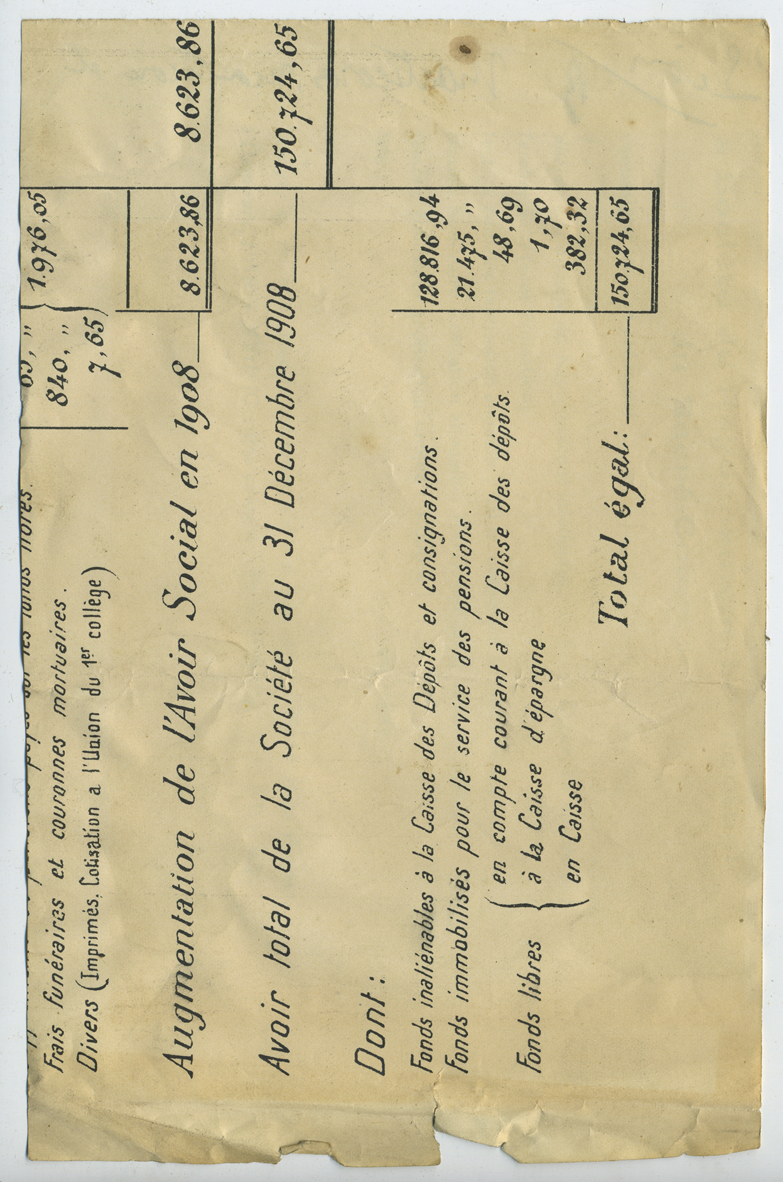 sur les fonds libres.
Frais funéraires et couronnes mortuaires. 840, „ 1.976,05
Divers (Imprimés, Cotisation a l'Union du 1er collège) 7,65
Augmentation de l'Avoir Social en 1908 8.623,86 8.623,86
Avoir total de la Société au 31 Décembre 1908 150.724,65
Dont :
Fonds inaliénables à la Caisse des Dépôts et consignations. 128.816,94
Fonds immobilisés pour le service des pensions. 21.475, „
en compte courant à la Caisse des dépôts. 48,69
Fonds libres à la Caisse d'épargne 1,70
en Caisse 382,32
Total égal: 150.724,65